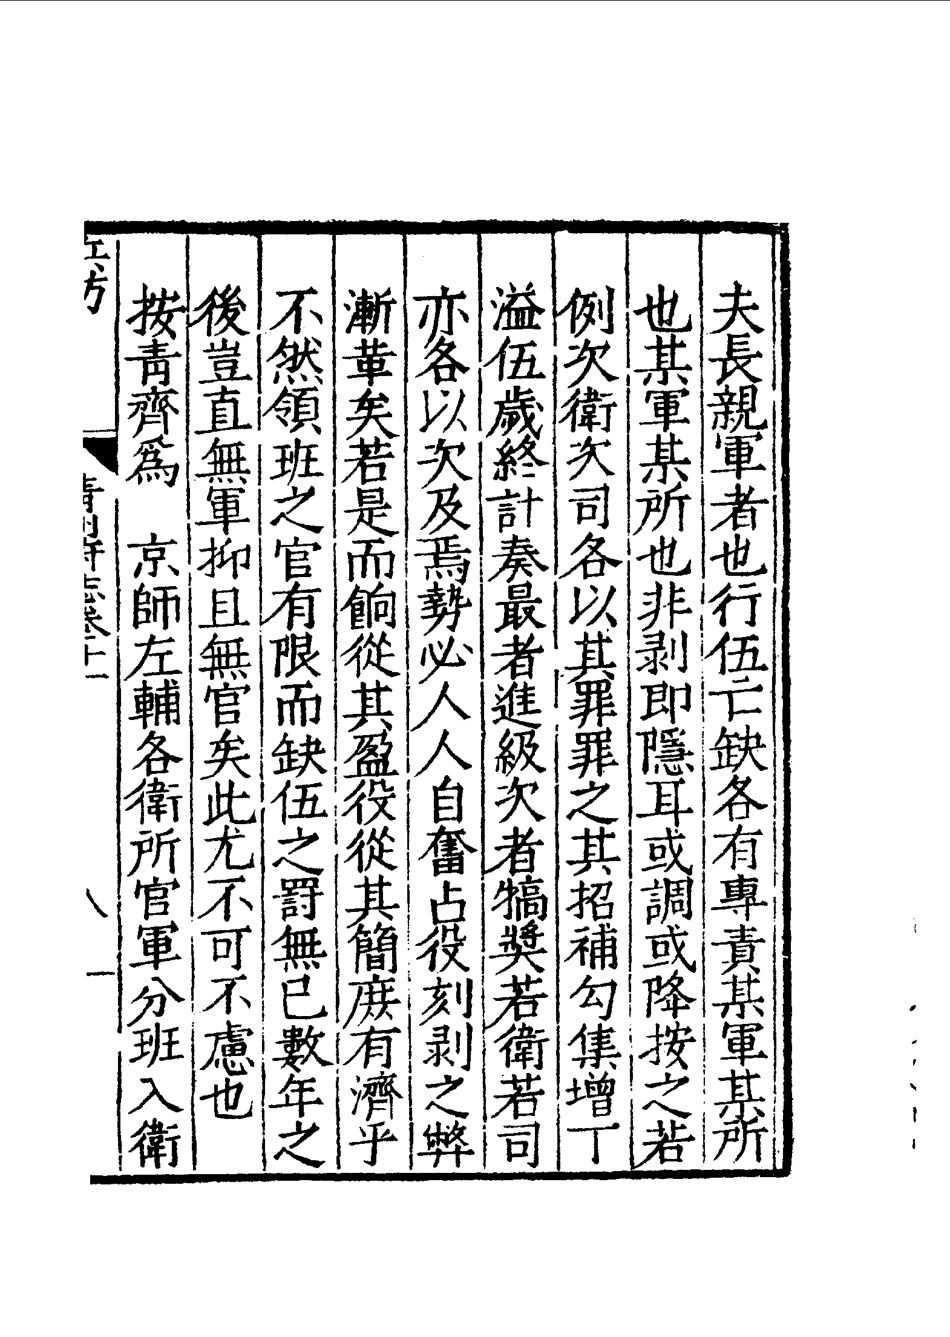 夫長親軍者也行伍亡缺各有專責某軍某所
也某軍某所也非剥即隱耳或調或降按之若
例次衛次司各以其罪罪之其招補勾集增丁
溢伍歲終計奏最者進級次者犒奬若衛若司
亦各以次及焉勢必人人自奮占役刻剥之弊
漸革矣若是而餉從其盈役從其簡庻有濟乎
不然領班之官有限而缺伍之罸無已數年之
後豈直無軍抑且無官矣此尤不可不慮也
按青齊爲　京師左輔各衛所官軍分班入衛
青州府志卷十一